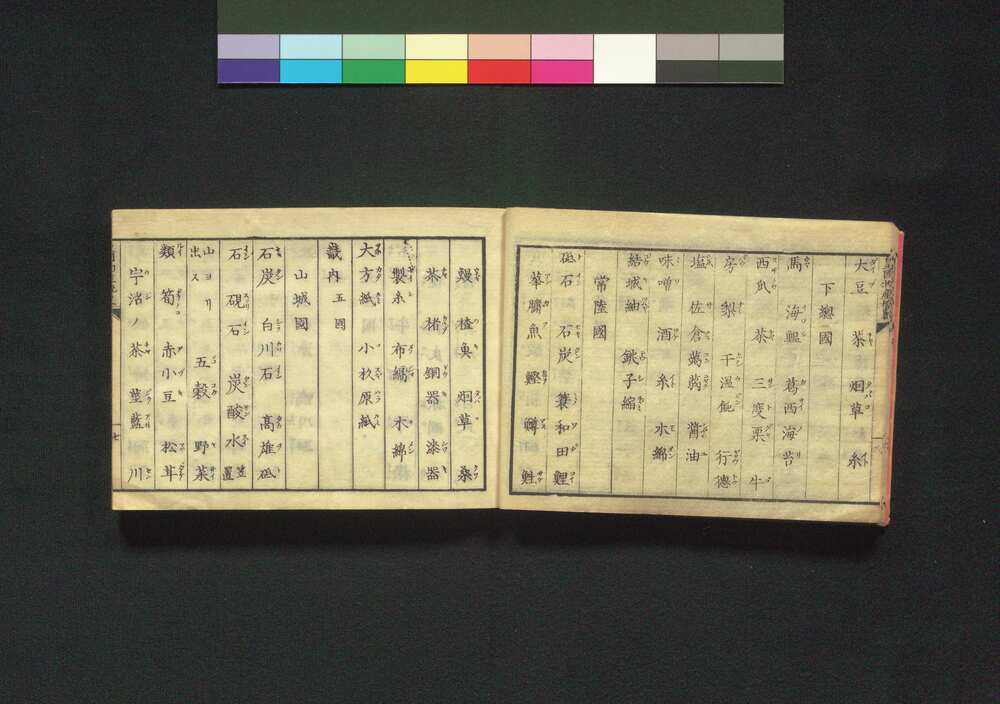 大豆 茶 烟草 糸
下總國
馬 海鰮 葛西海苔
西瓜 茶 三度栗 牛
房 梨 干温飩 行德
塩 佐倉蒟蒻 醬油
味噌 酒 糸 木綿
結城紬 銚子縮
常陸國
砥石 石炭 蓑和田鯉
華臍魚 鰹 鱒 鮏
鰻 楂奐 烟草 桑
茶 楮 銅器 漆器
製糸 布縞 木綿
大方紙 小杉原紙
畿内 五國
山城國
石炭 白川石 高雄砥
石 硯石 炭酸水 笠置
山ヨリ出ス 五穀 野菜
類 筍 赤小豆 松茸
宇治ノ茶 莖藍 川
七